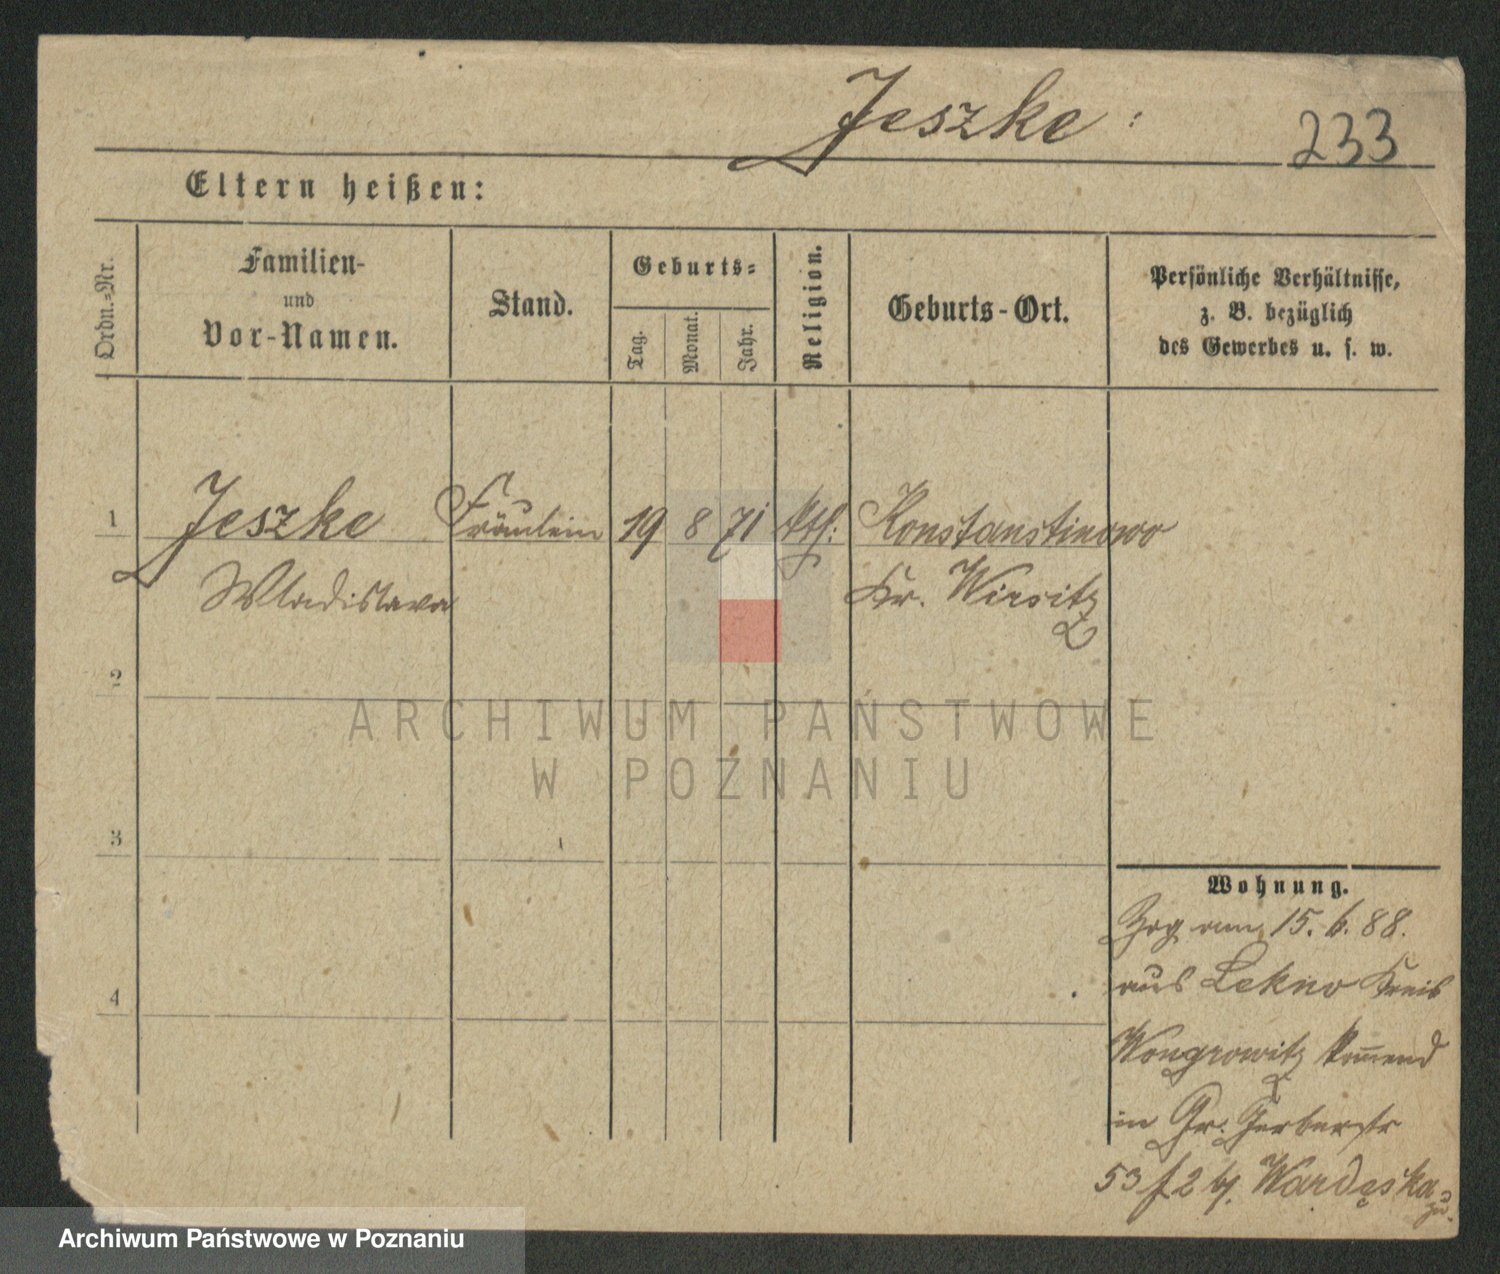 Jeszke :
233
Eltern heißen:
Ordn.=Nr.
Familien-
und
Vor-Namen.
Stand.
Geburts=
Tag.
Monat.
Jahr.
Religion.
Geburts-Ort.
Persönliche Verhältnisse,
z. B. bezüglich
des Gewerbes u. s. w.
1 Jeszke Fräulein 19 8 71 kth: Konstanstinowo
Wladislava Kr. Wirsitz
2
ARCHIWUM PAŃSTWOWE
W POZNANIU
3
Wohnung.
Zog am 15. 6. 88.
aus Lekno Kreis
4
Wongrowitz kom̅end
in Gr. Gerberstr
53 f 2 by. Wardęska
zu.
Archiwum Państwowe w Poznaniu